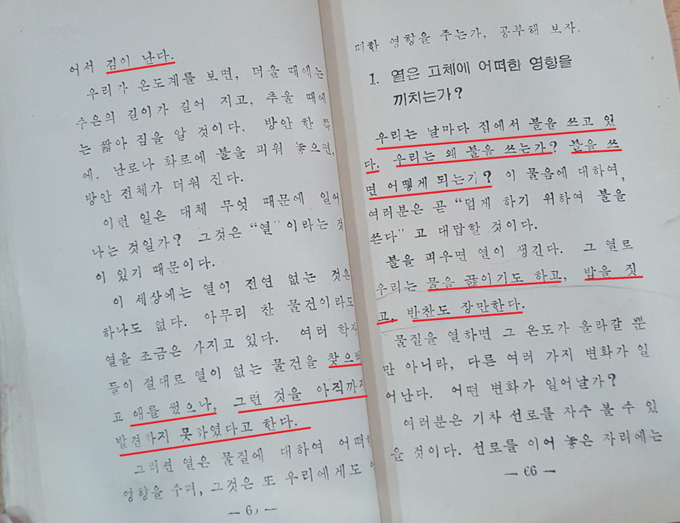 어서 김이 난다.
우리가 온도계를 보면, 더울 때에는
수은의 길이가 길어 지고, 추울 때에
는 짧아 짐을 알 것이다. 방안 한
에, 난로나 화로에 불을 피워 놓으면,
방안 전체가 더워 진다.
이런 일은 대체 무엇 때문에 일어
나는 것일가? 그것은 "열"이라는 것
이 있기 때문이다.
이 세상에는 열이 전연 없는 것은
하나도 없다. 아무리 찬 물건이라도
열을 조금은 가지고 있다. 여러 학자
들이 절대로 열이 없는 물건을 찾으려
고 애를 썼으나, 그런 것을 아직까지
발견하지 못하였다고 한다.
그러면 열은 물질에 대하여 어떠한
영향을 주며, 그것은 또 우리에게도
떠한 영향을 주는가, 공부해 보자.
1. 열은 고체에 어떠한 영향을
끼치는가?
우리는 날마다 집에서 불을 쓰고 있
다. 우리는 왜 불을 쓰는가? 불을 쓰
면 어떻게 되는가? 이 물음에 대하여,
여러분은 곧 "덥게 하기 위하여 불을
쓴다" 고 대답할 것이다.
불을 피우면 열이 생긴다. 그 열로
우리는 물을 끓이기도 하고, 밥을 짓
고, 반찬도 장만한다.
물질을 열하면 그 온도가 올라갈 뿐
만 아니라, 다른 여러 가지 변화가 일
어난다. 어떤 변화가 일어날가?
여러분은 기차 선로를 자주 볼 수 있
을 것이다. 선로를 이어 놓은 자리에는
— 66 —